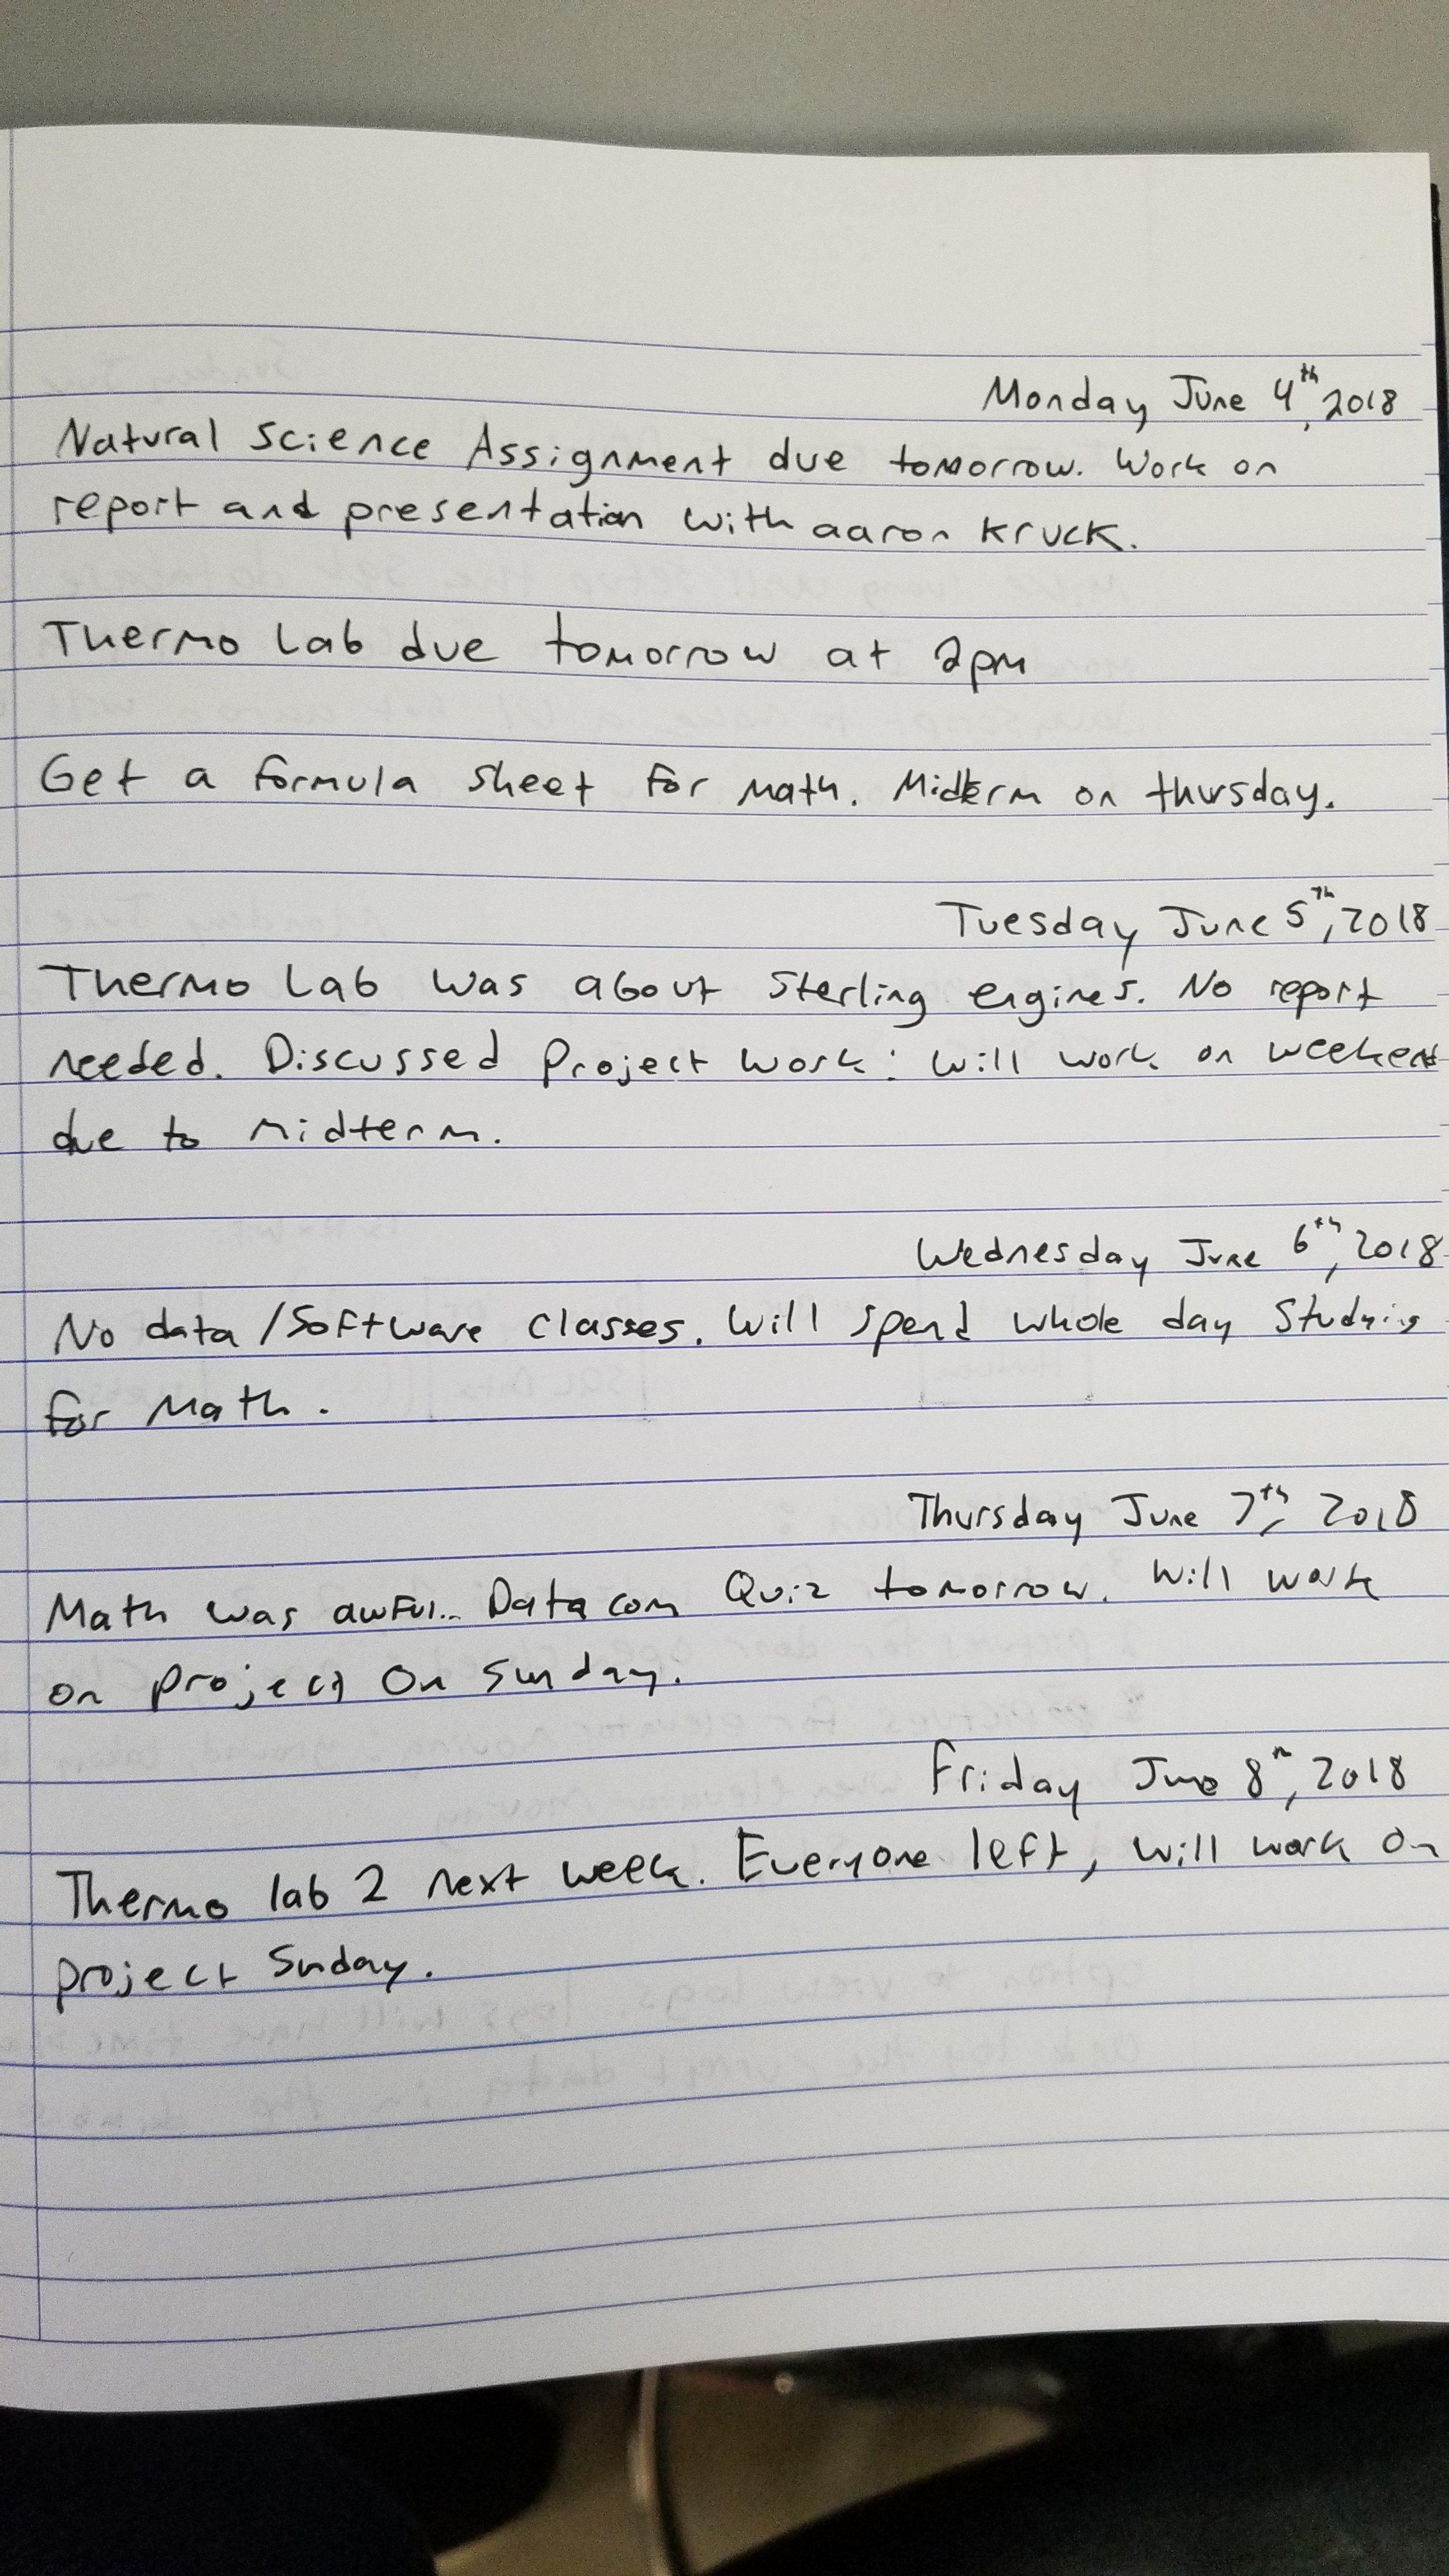 Monday June 4th, 2018
Natural Science Assignment due tomorrow. Work on
report and presentation with aaron Kruck.
Thermo Lab due tomorrow at 2pm
Get a formula sheet for math. Midterm on thursday.
Tuesday June 5th, 2018
Thermo Lab was about Sterling engines. No report
needed. Discussed Project work: will work on weekend
due to midterm.
Wednesday June 6th, 2018
No data/Software classes. Will spend whole day Studying
for Math.
Thursday June 7th, 2018
Math was awful... Data com Quiz tomorrow. Will work
on project On Sunday.
Friday June 8th, 2018
Thermo lab 2 next week. Everyone left, will work on
project Sunday.